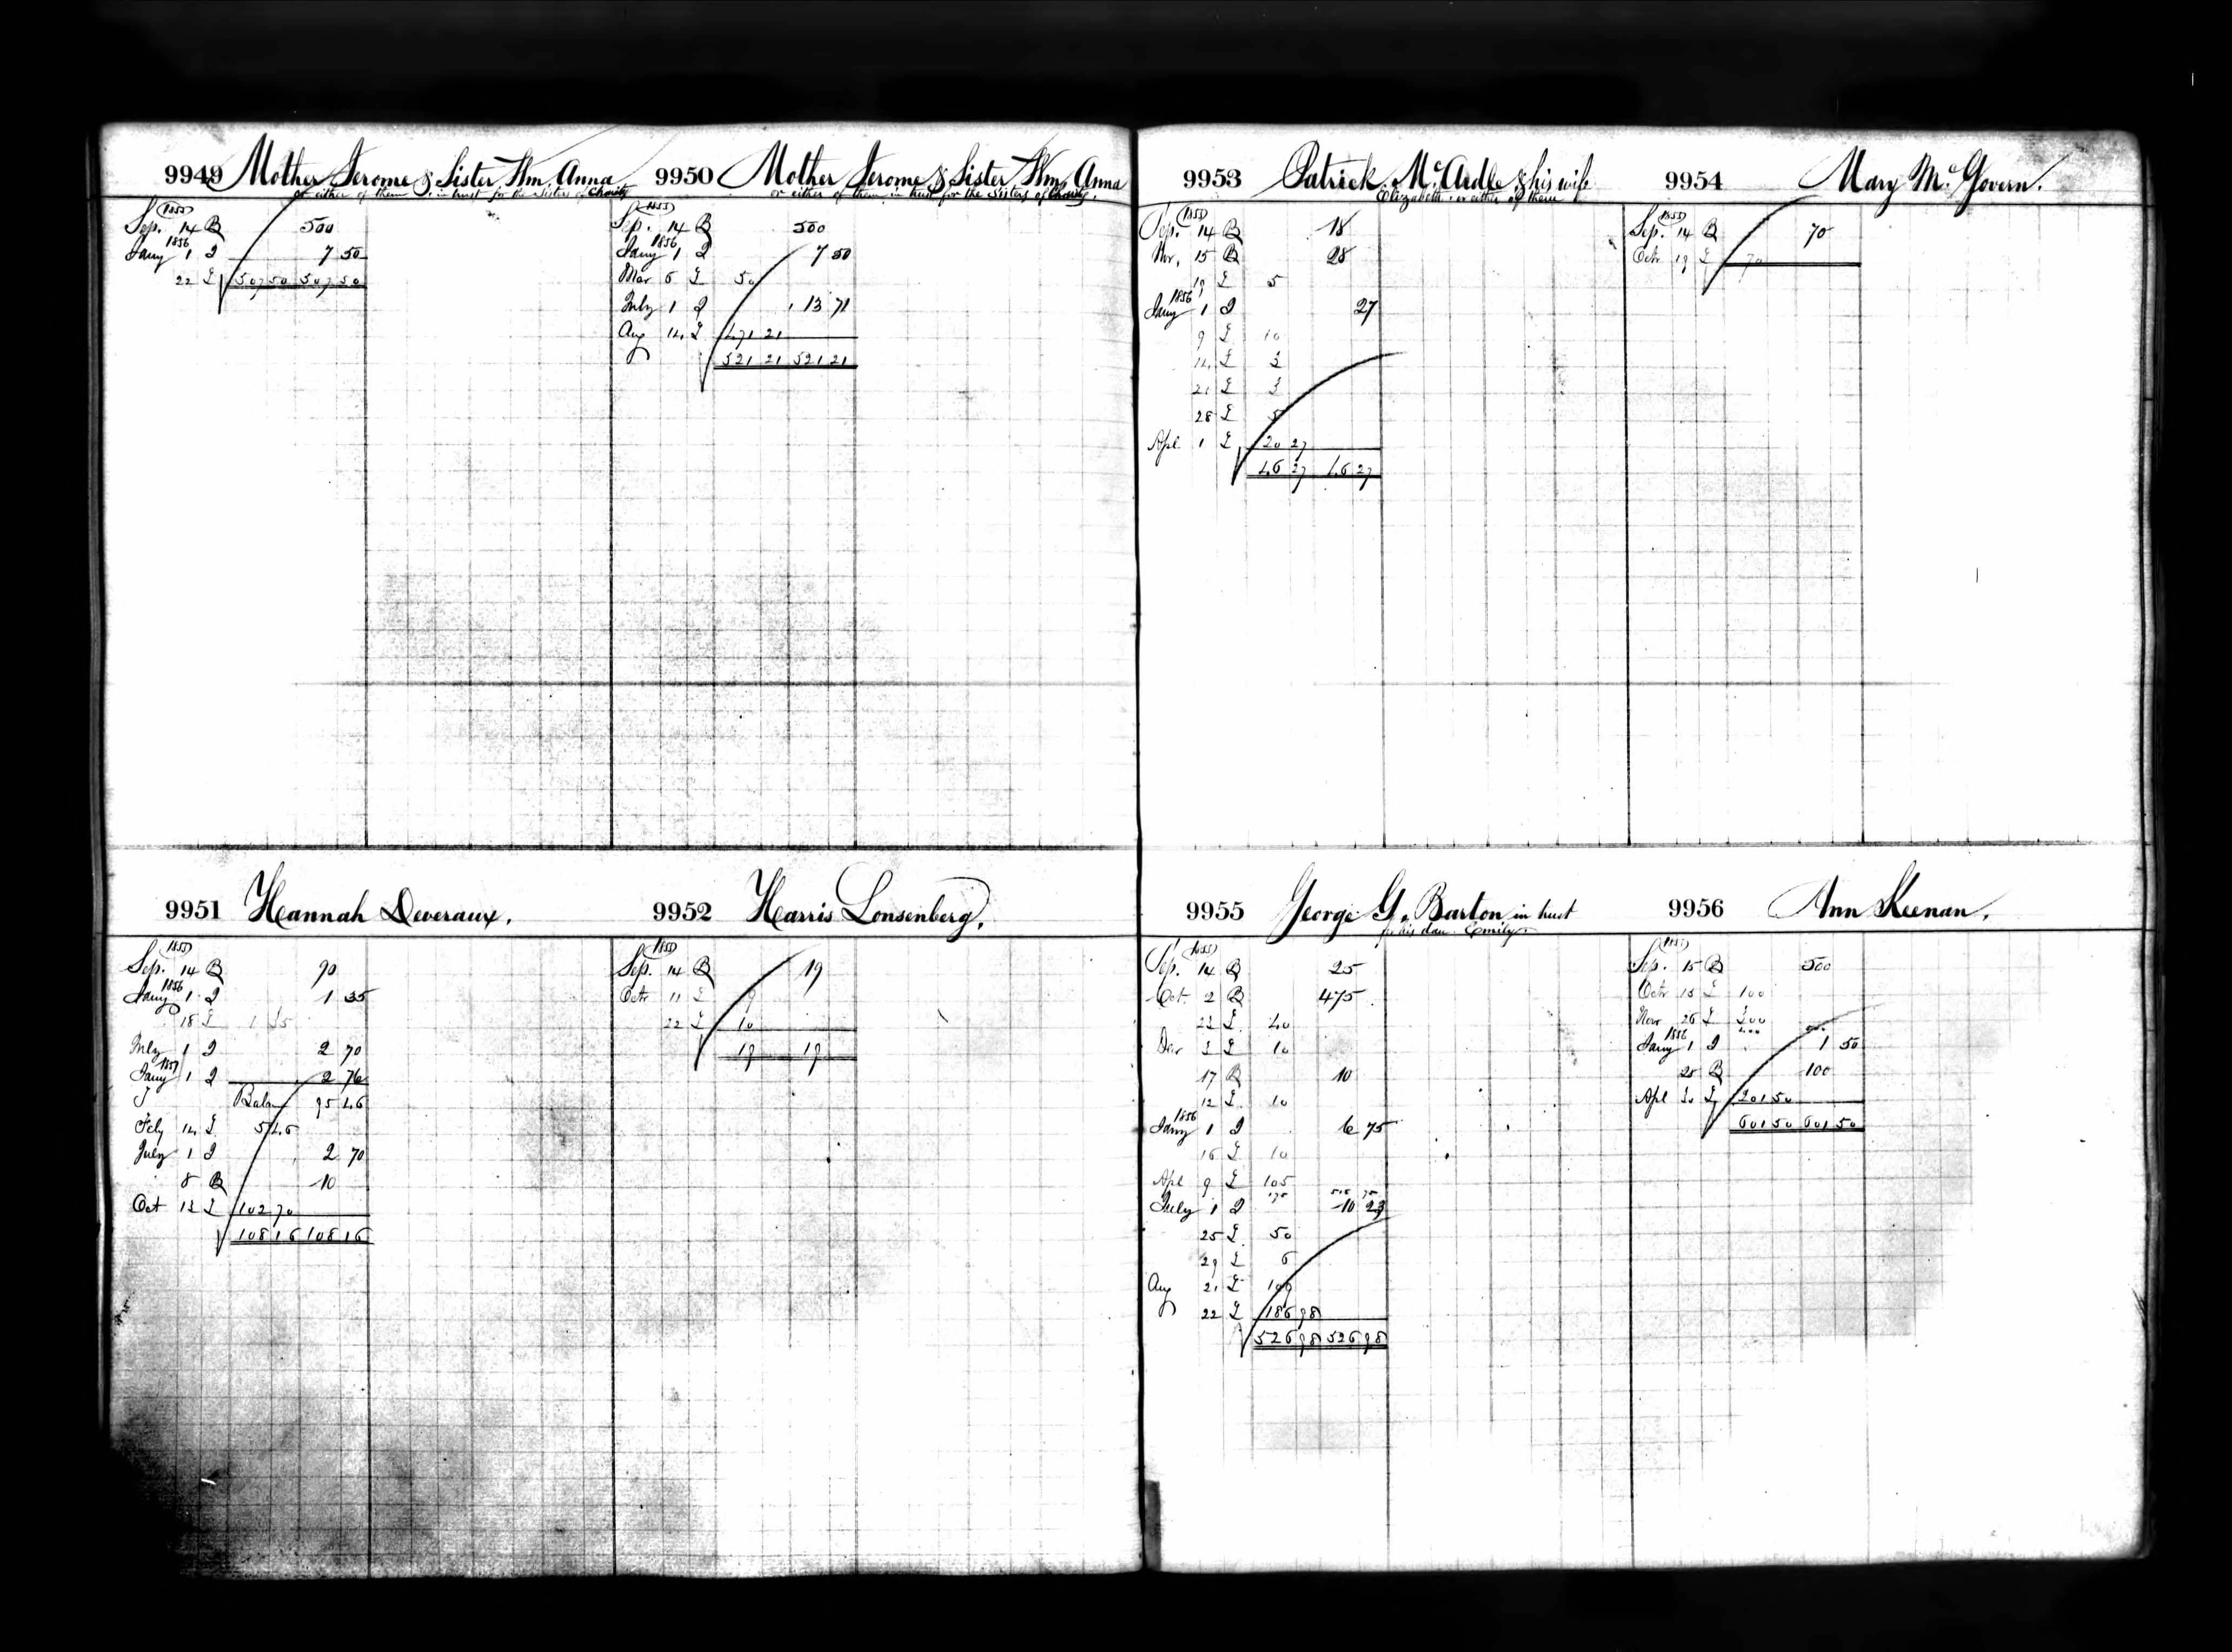 9949 Mother Jerome & Sister Wm Anna
or either of them in trust for the Sisters of Charity
1855
Sep. 14 B 500
1856
Jany 1 I 7 50
22 L 507 50 507 50
9950 Mother Jerome & Sister Wm Anna
or either of them, in trust for the Sisters of Charity.
1855
Sep. 14 B 500
1856
Jany 1 I 7 50
Mar 6 L 50
July 1 I 13 71
Aug 14 L 471 21
521 21 521 21
9951 Hannah Deveraux.
1855
Sep. 14 B 90
1856
Jany 1 I 1 35
18 L 1 35
July 1 I 2 70
1857
Jany 1 I 2 76
Balan 95 46
Feby 14 L 5 46
July 1 I 2 70
8 B 10
Oct 13 L 102 70
108 16 108 16
9952 Harris Lonsenberg.
1855
Sep. 14 B 19
Octr 11 L 9
22 L 10
19 19
9953 Patrick McArdle & his wife
Elizabeth or either of them
1855
Sep. 14 B 18
Nov. 15 B 28
19 L 5
1856
Jany 1 I 27
9 L 10
14 L 3
21 L 3
28 L 5
Apl 1 L 20 27
46 27 46 27
9954 Mary McGovern.
1855
Sep. 14 B 70
Octr 19 L 70
9955 George G. Barton in trust
for his dau. Emily
1855
Sep. 14 B 25
Oct. 2 B 475
23 L 40
Dec 3 L 10
17 B 10
12 L 10
1856
Jany 1 I 6 75
16 L 10
Apl 9 L 105
175 516 75
July 1 I 10 23
25 L 50
29 L 6
Aug 21 L 109
22 L 186 98
526 98 526 98
9956 Ann Keenan.
1855
Sep. 15 B 500
Octr 15 L 100
Novr 26 L 300
400
1856
Jany 1 I 1 50
25 B 100
Apl 30 L 201 50
601 50 601 50